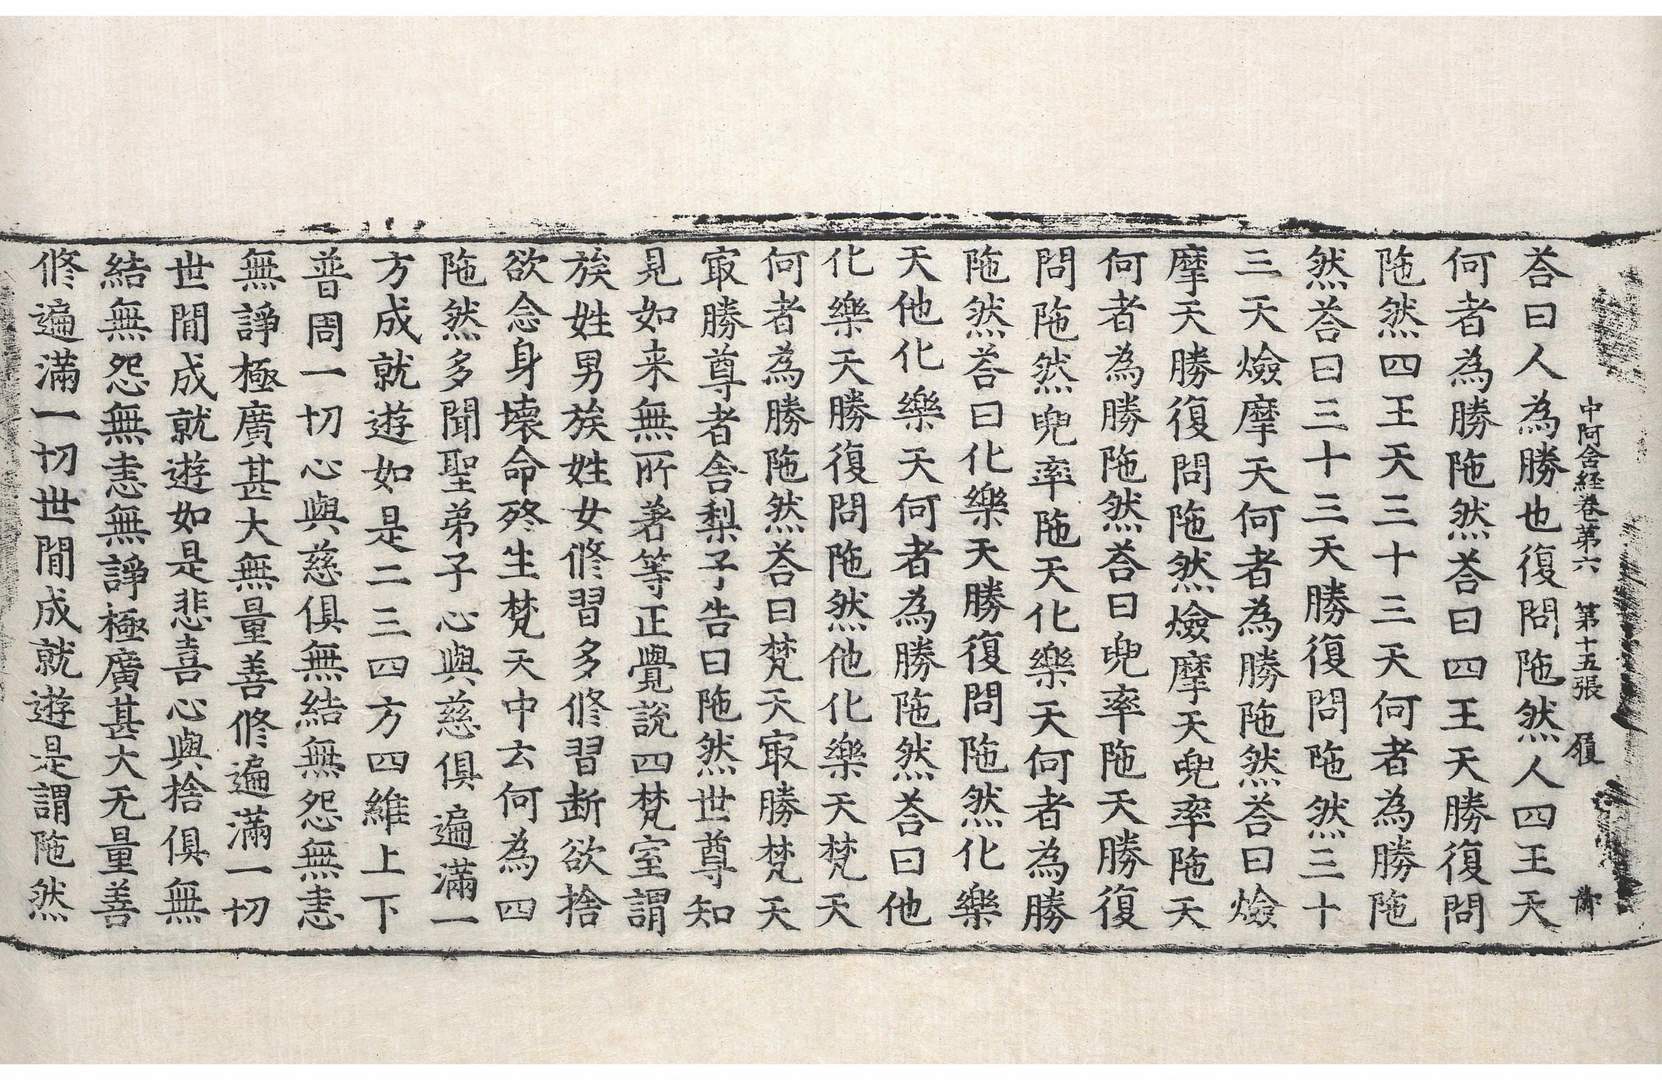 中阿含経卷第六　第十五張　履
荅曰人為勝也復問陁然人四王天
何者為勝陁然荅曰四王天勝復問
陁然四王天三十三天何者為勝陁
然荅曰三十三天勝復問陁然三十
三天㷿摩天何者為勝陁然荅曰㷿
摩天勝復問陁然㷿摩天兜率陁天
何者為勝陁然荅曰兜率陁天勝復
問陁然兜率陁天化樂天何者為勝
陁然荅曰化樂天勝復問陁然化樂
天他化樂天何者為勝陁然荅曰他
化樂天勝復問陁然他化樂天梵天
何者為勝陁然荅曰梵天㝡勝梵天
㝡勝尊者舎梨子告曰陁然世尊知
見如来無所著等正覺說四梵室謂
族姓男族姓女修習多修習断欲捨
欲念身壊命終生梵天中云何為四
陁然多聞聖弟子心與慈俱遍滿一
方成就遊如是二三四方四維上下
普周一切心與慈俱無結無怨無恚
無諍極廣甚大無量善修遍滿一切
世間成就遊如是悲喜心與捨俱無
結無怨無恚無諍極廣甚大无量善
修遍滿一切世間成就遊是謂陁然